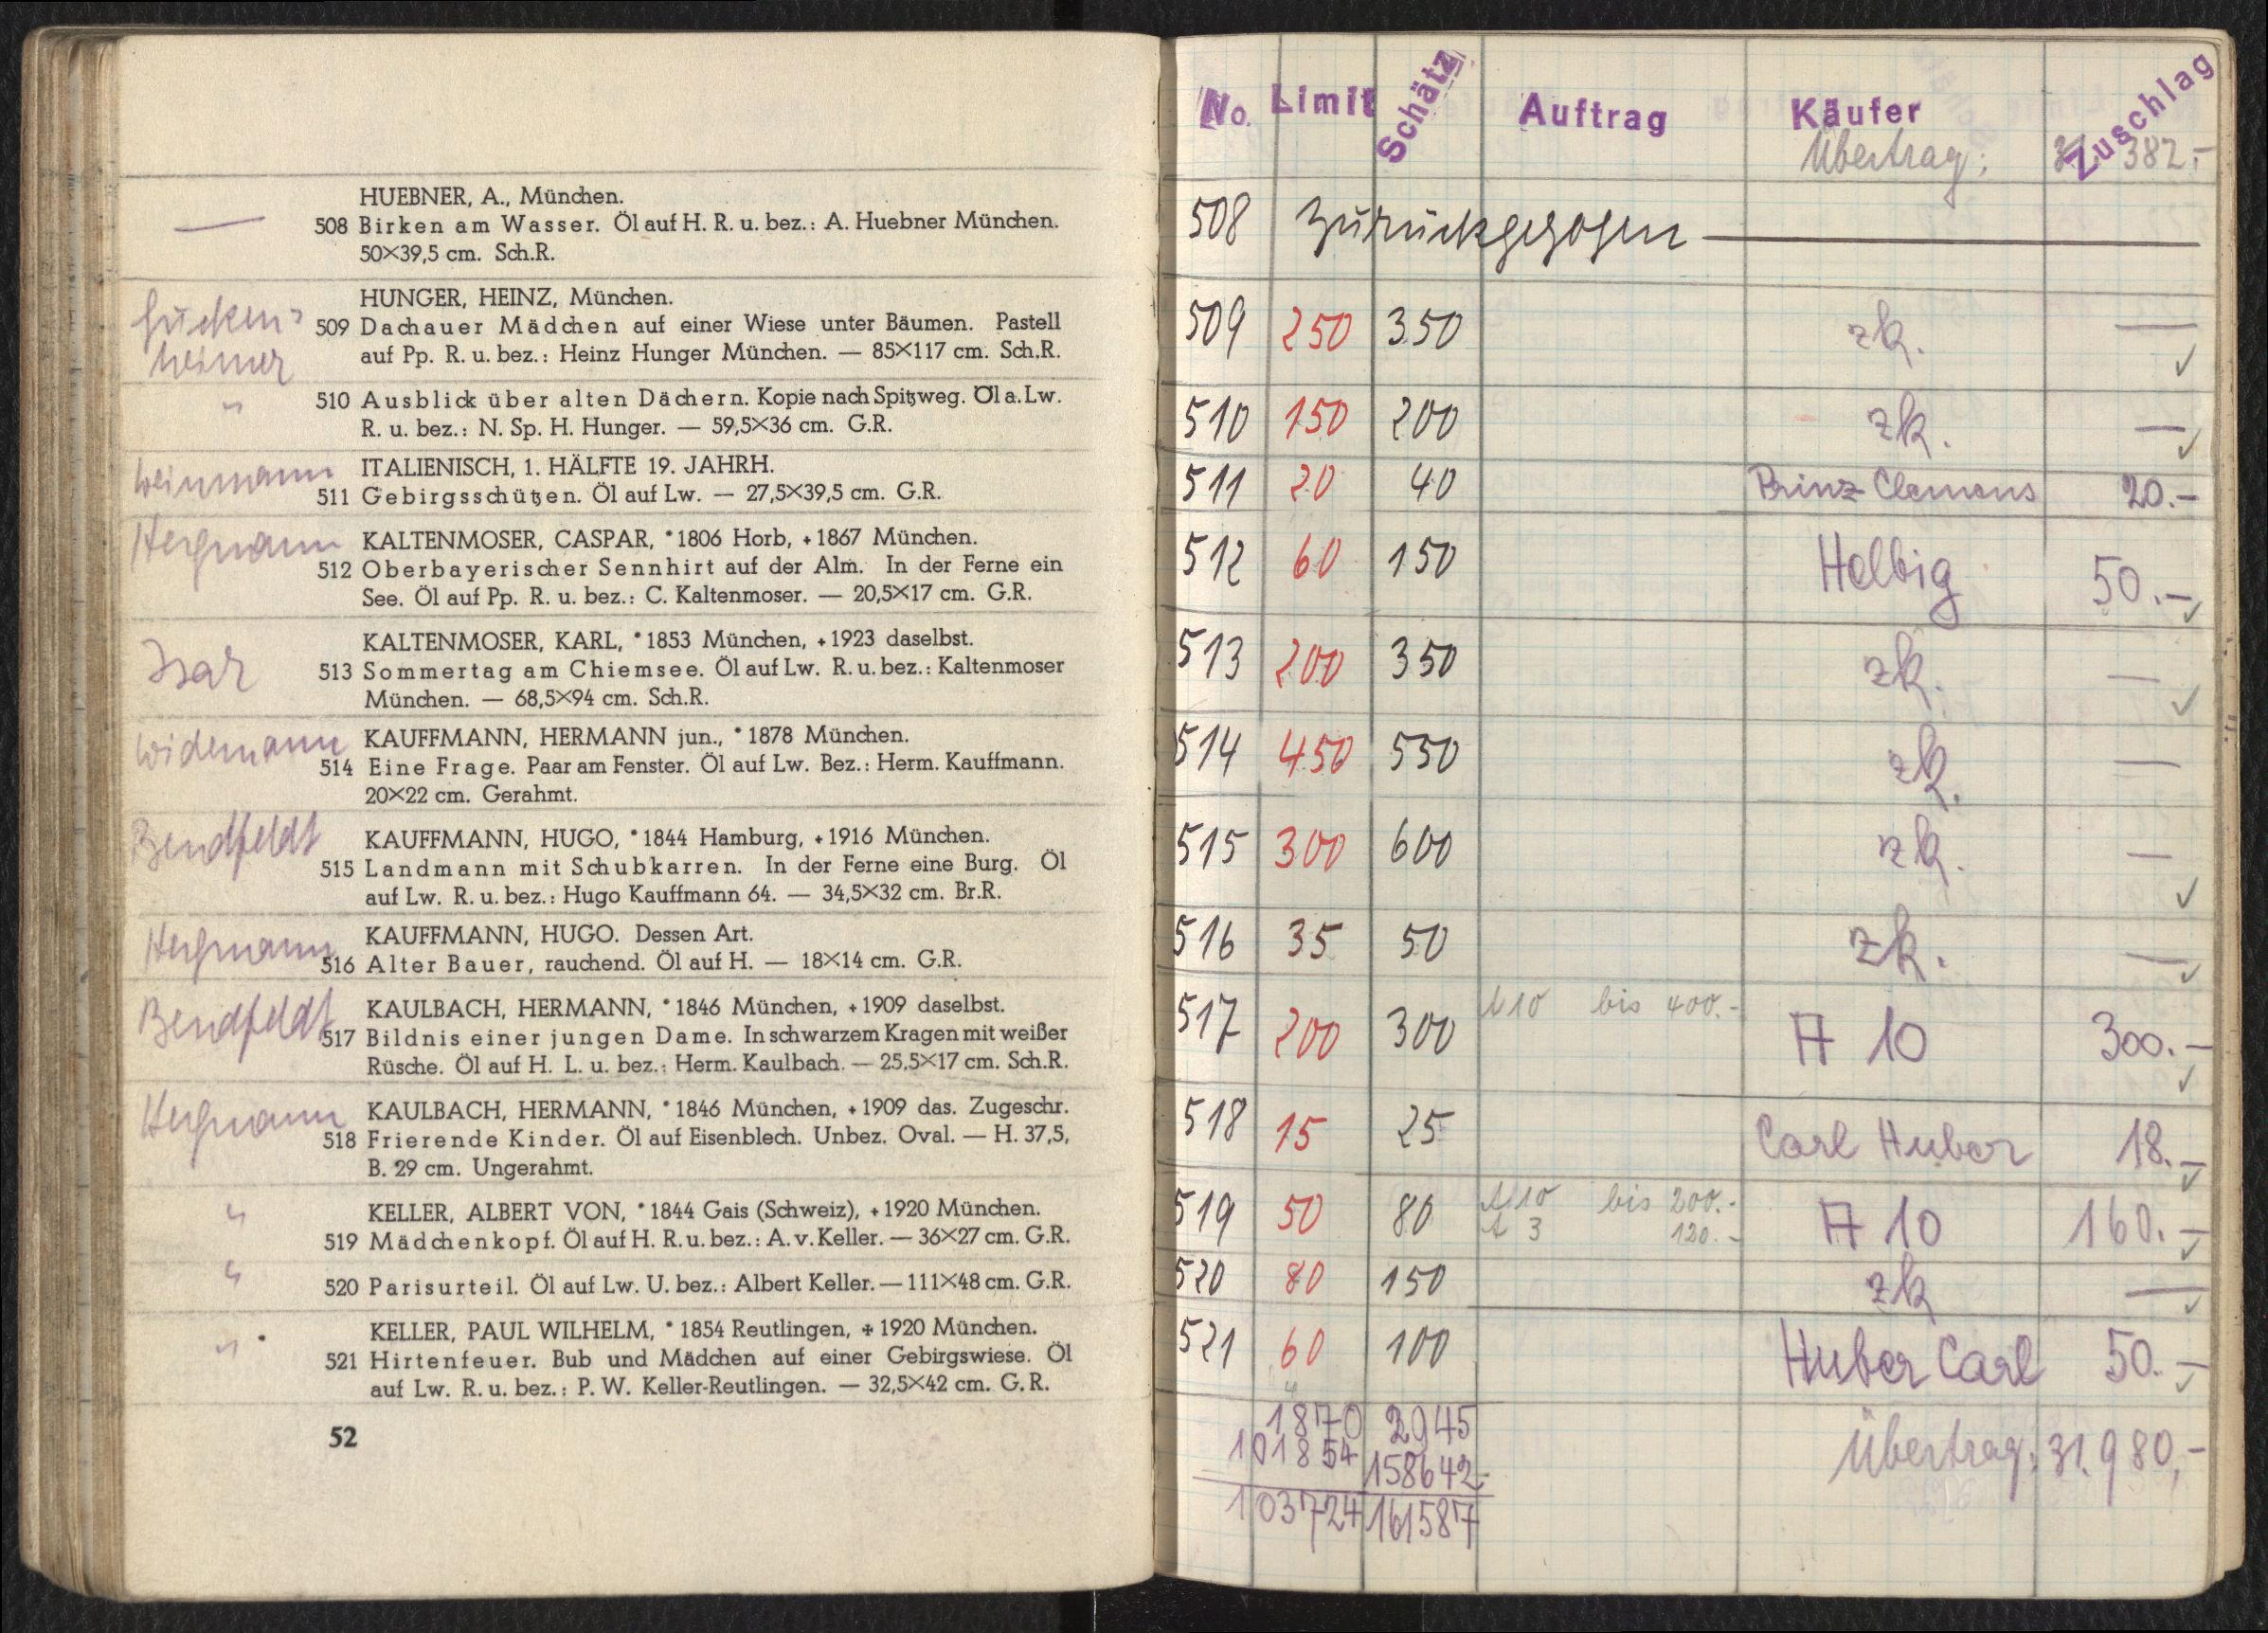 HUEBNER, A., München.
508 Birken am Wasser. Öl auf H. R. u. bez.: A. Huebner München.
50×39,5 cm. Sch.R.
HUNGER, HEINZ, München.
509 Dachauer Mädchen auf einer Wiese unter Bäumen. Pastell
auf Pp. R. u. bez.: Heinz Hunger München. — 85×117 cm. Sch.R.
" 510 Ausblick über alten Dächern. Kopie nach Spitzweg. Öl a. Lw.
R. u. bez.: N. Sp. H. Hunger. — 59,5×36 cm. G.R.
Weinmann ITALIENISCH, 1. HÄLFTE 19. JAHRH.
511 Gebirgsschützen. Öl auf Lw. — 27,5×39,5 cm. G.R.
KALTENMOSER, CASPAR, *1806 Horb, +1867 München.
512 Oberbayerischer Sennhirt auf der Alm. In der Ferne ein
See. Öl auf Pp. R. u. bez.: C. Kaltenmoser. — 20,5×17 cm. G.R.
KALTENMOSER, KARL, *1853 München, +1923 daselbst.
Isar 513 Sommertag am Chiemsee. Öl auf Lw. R. u. bez.: Kaltenmoser
München. — 68,5×94 cm. Sch.R.
Widemann KAUFFMANN, HERMANN jun., *1878 München.
514 Eine Frage. Paar am Fenster. Öl auf Lw. Bez.: Herm. Kauffmann.
20×22 cm. Gerahmt.
Bendfeldt KAUFFMANN, HUGO, *1844 Hamburg, +1916 München.
515 Landmann mit Schubkarren. In der Ferne eine Burg. Öl
auf Lw. R. u. bez.: Hugo Kauffmann 64. — 34,5×32 cm. Br.R.
KAUFFMANN, HUGO. Dessen Art.
516 Alter Bauer, rauchend. Öl auf H. — 18×14 cm. G.R.
Bendfeldt KAULBACH, HERMANN, *1846 München, +1909 daselbst.
517 Bildnis einer jungen Dame. In schwarzem Kragen mit weißer
Rüsche. Öl auf H. L. u. bez.: Herm. Kaulbach. — 25,5×17 cm. Sch.R.
KAULBACH, HERMANN, *1846 München, +1909 das. Zugeschr.
518 Frierende Kinder. Öl auf Eisenblech. Unbez. Oval. — H. 37,5,
B. 29 cm. Ungerahmt.
" KELLER, ALBERT VON, *1844 Gais (Schweiz), +1920 München.
519 Mädchenkopf. Öl auf H. R. u. bez.: A. v. Keller. — 36×27 cm. G.R.
" 520 Parisurteil. Öl auf Lw. U. bez.: Albert Keller. — 111×48 cm. G.R.
" KELLER, PAUL WILHELM, *1854 Reutlingen, +1920 München.
521 Hirtenfeuer. Bub und Mädchen auf einer Gebirgswiese. Öl
auf Lw. R. u. bez.: P. W. Keller-Reutlingen. — 32,5×42 cm. G.R.
52
No. Limit Schätz Auftrag Käufer Zuschlag
Übertrag: 382.-
508 Zurückgezogen —
509 250 350 zk. —
510 150 200 zk. —
511 20 40 Prinz Clemens 20.-
512 60 150 Helbig 50.-
513 200 350 zk. —
514 450 550 zk. —
515 300 600 zk. —
516 35 50 zk. —
517 200 300 A 10 bis 400.- A 10 300.-
518 15 25 Carl Huber 18.-
519 50 80 A 10 bis 200.- A 10 160.-
A 3 120.-
520 80 150 zk —
521 60 100 Huber Carl 50.-
1870 2945
101854 158642- Übertrag: 31.980,-
103724 161587